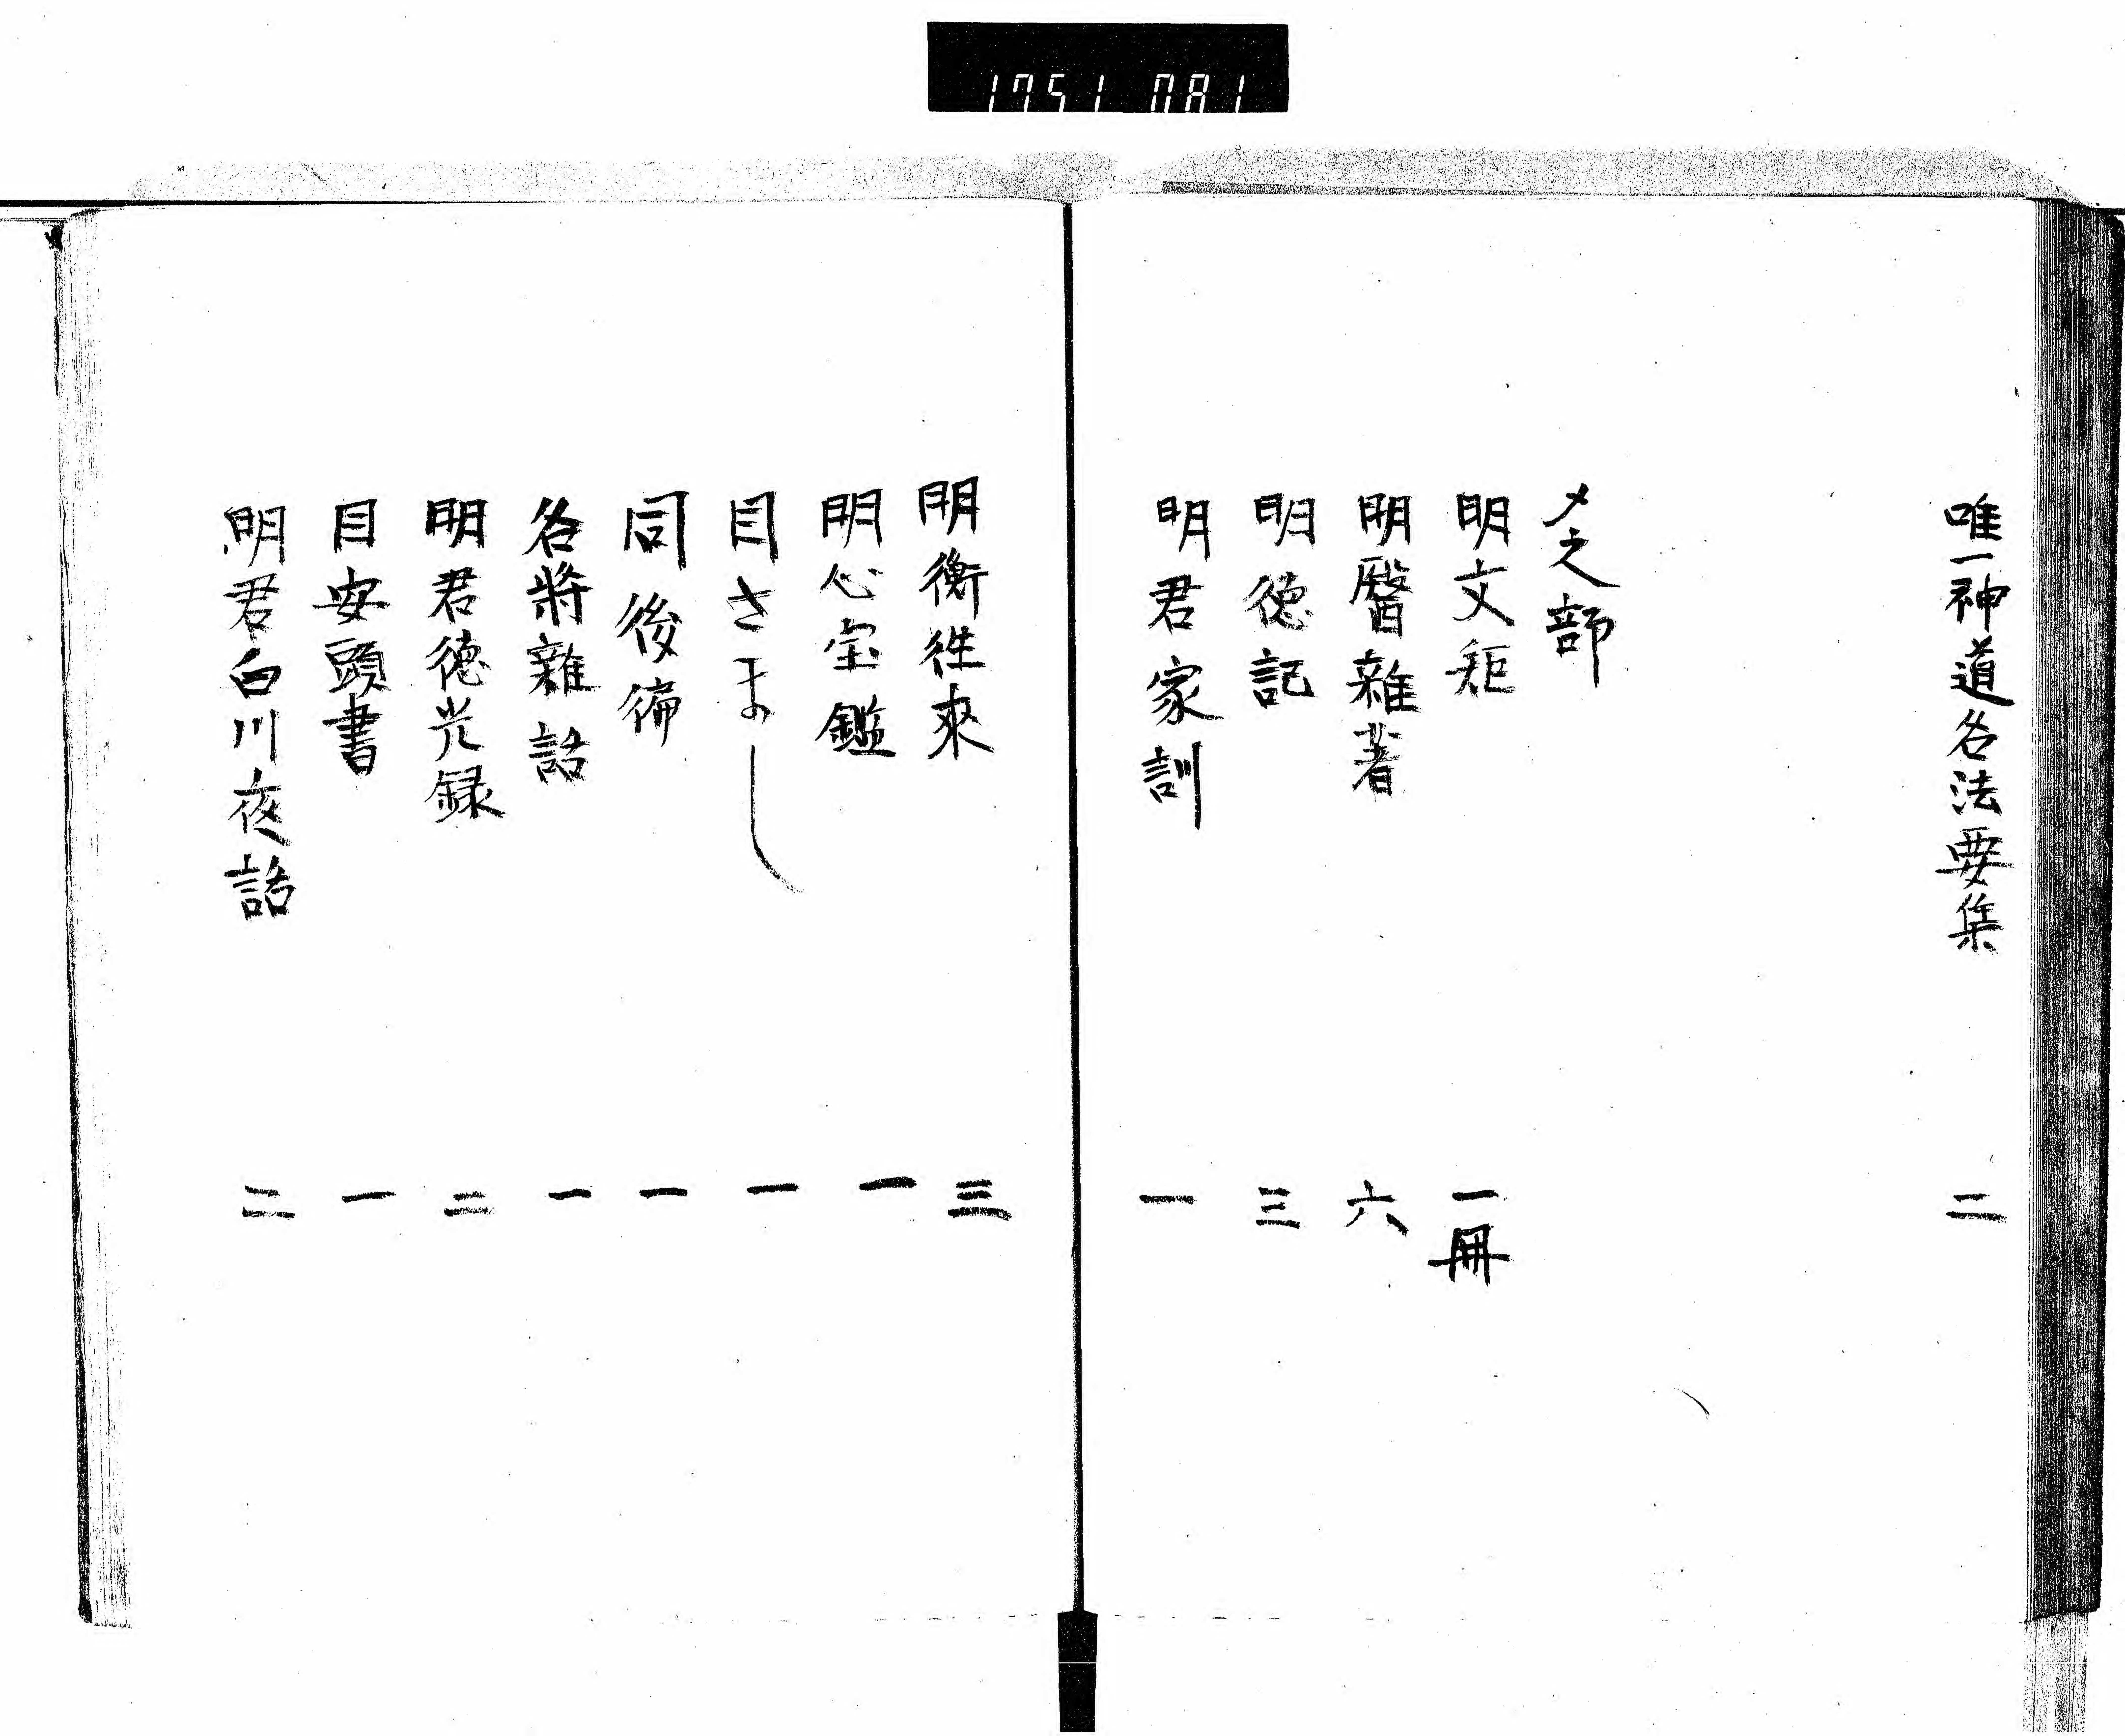 1751 081
唯一神道名法要集 二
メ之部
明文矩 一冊
明醫雜著 六
明徳記 三
明君家訓 一
明衡徃來 三
明心宝鑑 一
目さまし 一
同後徧 一
名將雜話 一
明君徳光録 二
目安頭書 一
明君白川夜話 二